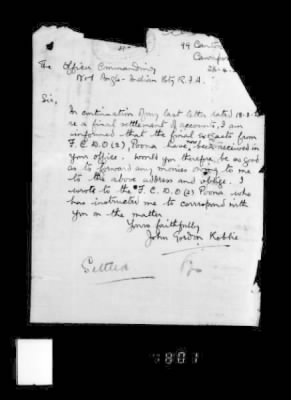 99 Canton
Cawnpore
The Officer Commanding
No 1 Anglo-Indian Bty R.F.A.
Sir,
In continuation of my last letter dated
re a final settlement of accounts, I am
informed that the final extracts from
F.C.D.O (2), Poona have now been received in
your office. Would you therefore be as good
as to forward any monies owing to me
to the above address and oblige. I
wrote to the F.C.D.O (2) Poona who
has instructed me to correspond with
you on the matter
Yours faithfully
John Gordon Kebbie
Settled
7801